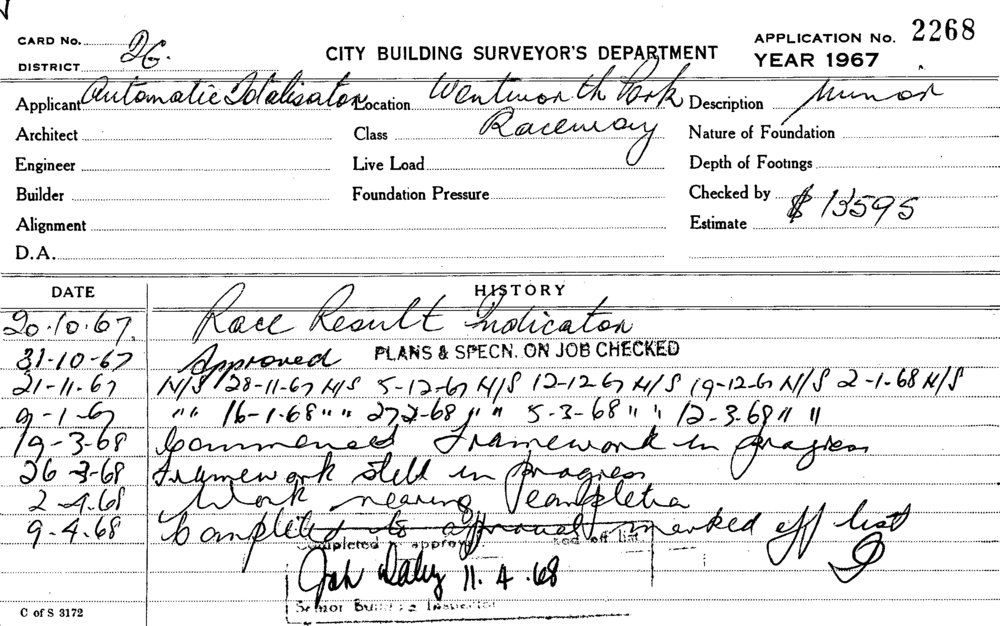 CARD No. 26.
DISTRICT
CITY BUILDING SURVEYOR'S DEPARTMENT
APPLICATION No. 2268
YEAR 1967
Applicant Automatic Totalisators Location Wentworth Park Raceway Description Minor
Architect Class Nature of Foundation
Engineer Live Load Depth of Footings
Builder Foundation Pressure Checked by
Alignment Estimate $ 13595
D.A.
DATE HISTORY
20.10.67. Race Result Indicator
31-10-67 Approved PLANS & SPECN. ON JOB CHECKED
21-11-67 N/S 28-11-67 N/S 5-12-67 N/S 12-12-67 N/S 19-12-67 N/S 2-1-68 N/S
9-1-67 " " 16-1-68 " " 27-2-68 " " 5-3-68 " " 12-3-68 " "
19-3-68 Commenced Framework in progress
26-3-68 Framework still in progress
2-4-68 Work nearing completion
9-4-68 Completed to approval marked off list
Completed to approval marked off list
11.4.68
Senior Building Inspector
C of S 3172